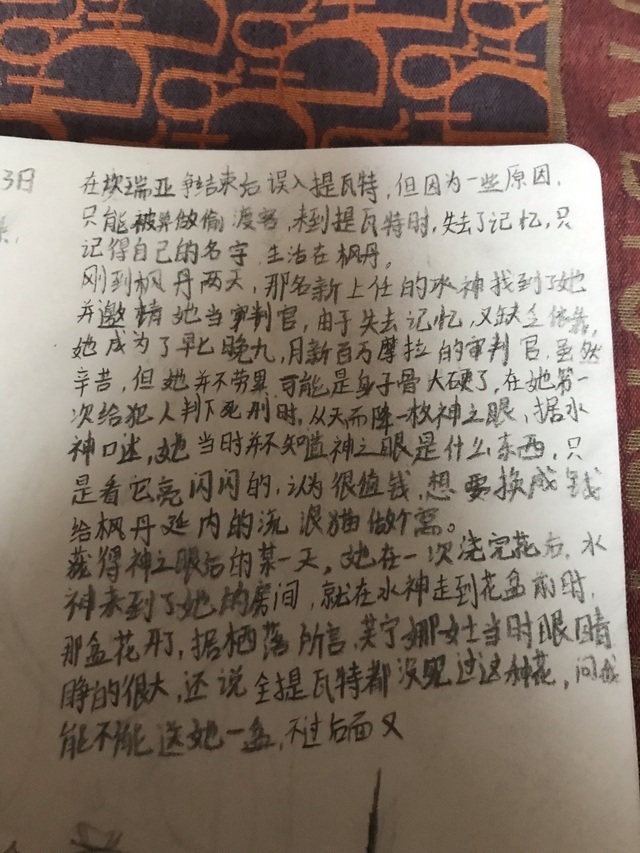 3日
在坎瑞亚争结束后误入提瓦特，但因为一些原因，
只能被算做偷渡客，来到提瓦特时，失去了记忆，只
记得自己的名字，生活在枫丹，
刚到枫丹两天，那名新上任的水神找到了她
并邀请她当审判官，由于失去记忆，又缺乏依靠，
她成为了早七晚九，月薪百万摩拉的审判官，虽然
辛苦，但她并不劳累，可能是身子骨太硬了，在她第一
次给犯人判下死刑时，从天而降一枚神之眼，据水
神口述，她当时并不知道神之眼是什么东西，只
是看它亮闪闪的，认为很值钱，想要换成钱
给枫丹廷内的流浪猫做个窝。
获得神之眼后的某一天，她在一次浇完花后，水
神来到了她的房间，就在水神走到花盆前时，
那盆花开了，据栖落所言，芙宁娜女士当时眼睛
睁的很大，还说全提瓦特都没见过这种花，问我
能不能送她一盆，不过后面又